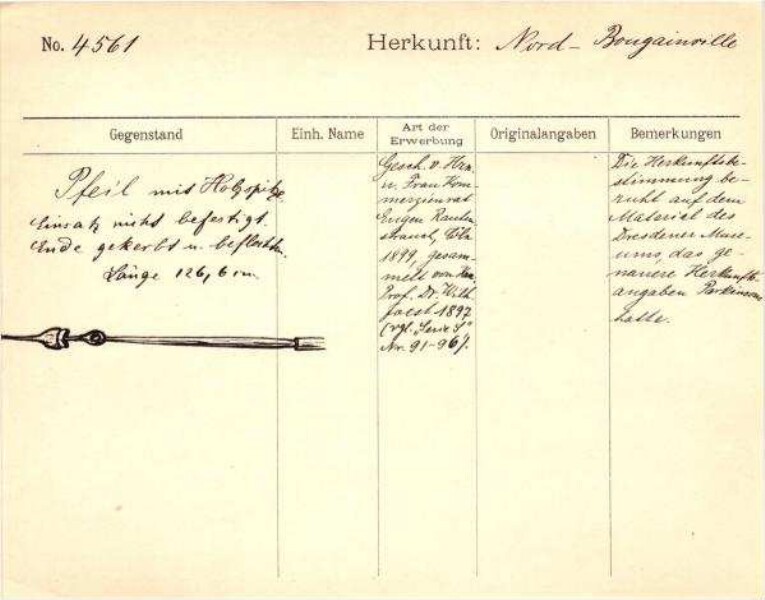 No. 4561
Herkunft: Nord- Bougainville
Gegenstand
Einh. Name
Art der
Erwerbung
Originalangaben
Bemerkungen
Pfeil mit Holzspitze.
Einsatz nicht befestigt.
Ende gekerbt u. beflochten.
Länge 126,6 cm.
Gesch. v. Hrn.
u. Frau Kom-
merzienrat
Eugen Rauten-
strauch, Cöln
1899, gesam-
melt von Hrn.
Prof. Dr. Wilh.
Joest 1897
(vgl. Serie S
Nr. 91-96).
Die Herkunftsbe-
stimmung be-
ruht auf dem
Material des
Dresdener Muse-
ums, das ge-
nauere Herkunfts-
angaben Parkinsons
hatte.